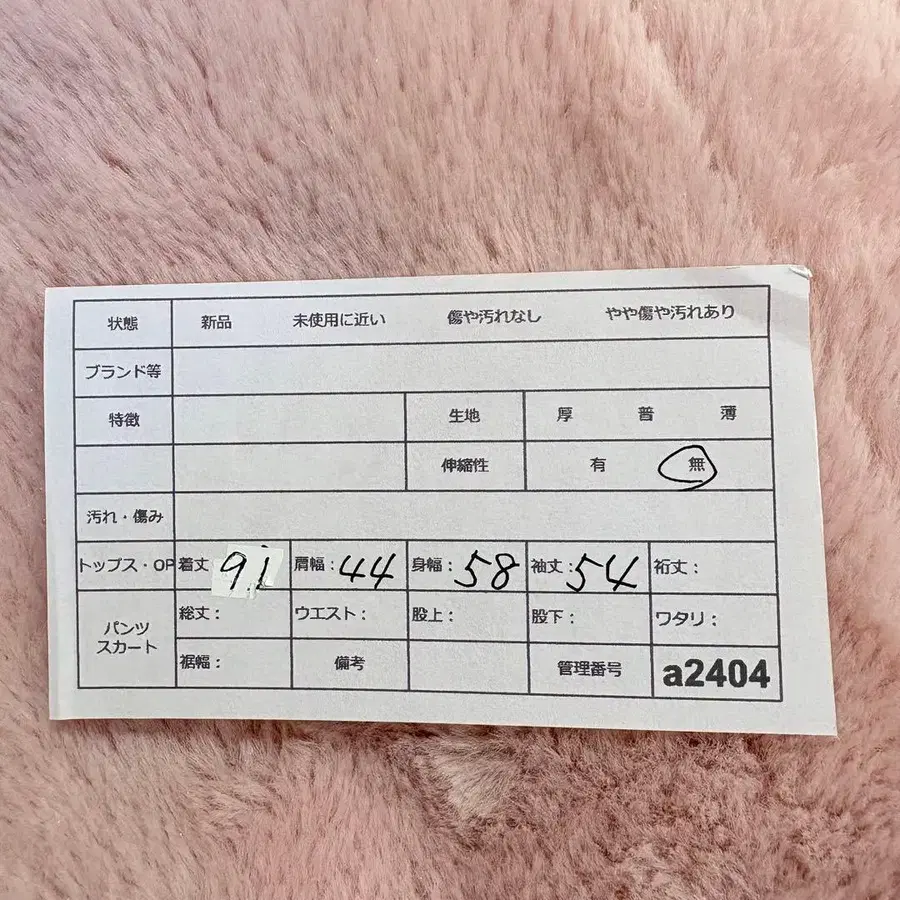 状態 新品 未使用に近い 傷や汚れなし やや傷や汚れあり
ブランド等
特徴 生地 厚 普 薄
伸縮性 有 無
汚れ・傷み
トップス・OP 着丈 91 肩幅：44 身幅：58 袖丈：54 裄丈：
パンツ
スカート
総丈： ウエスト： 股上： 股下： ワタリ：
裾幅： 備考 管理番号 a2404